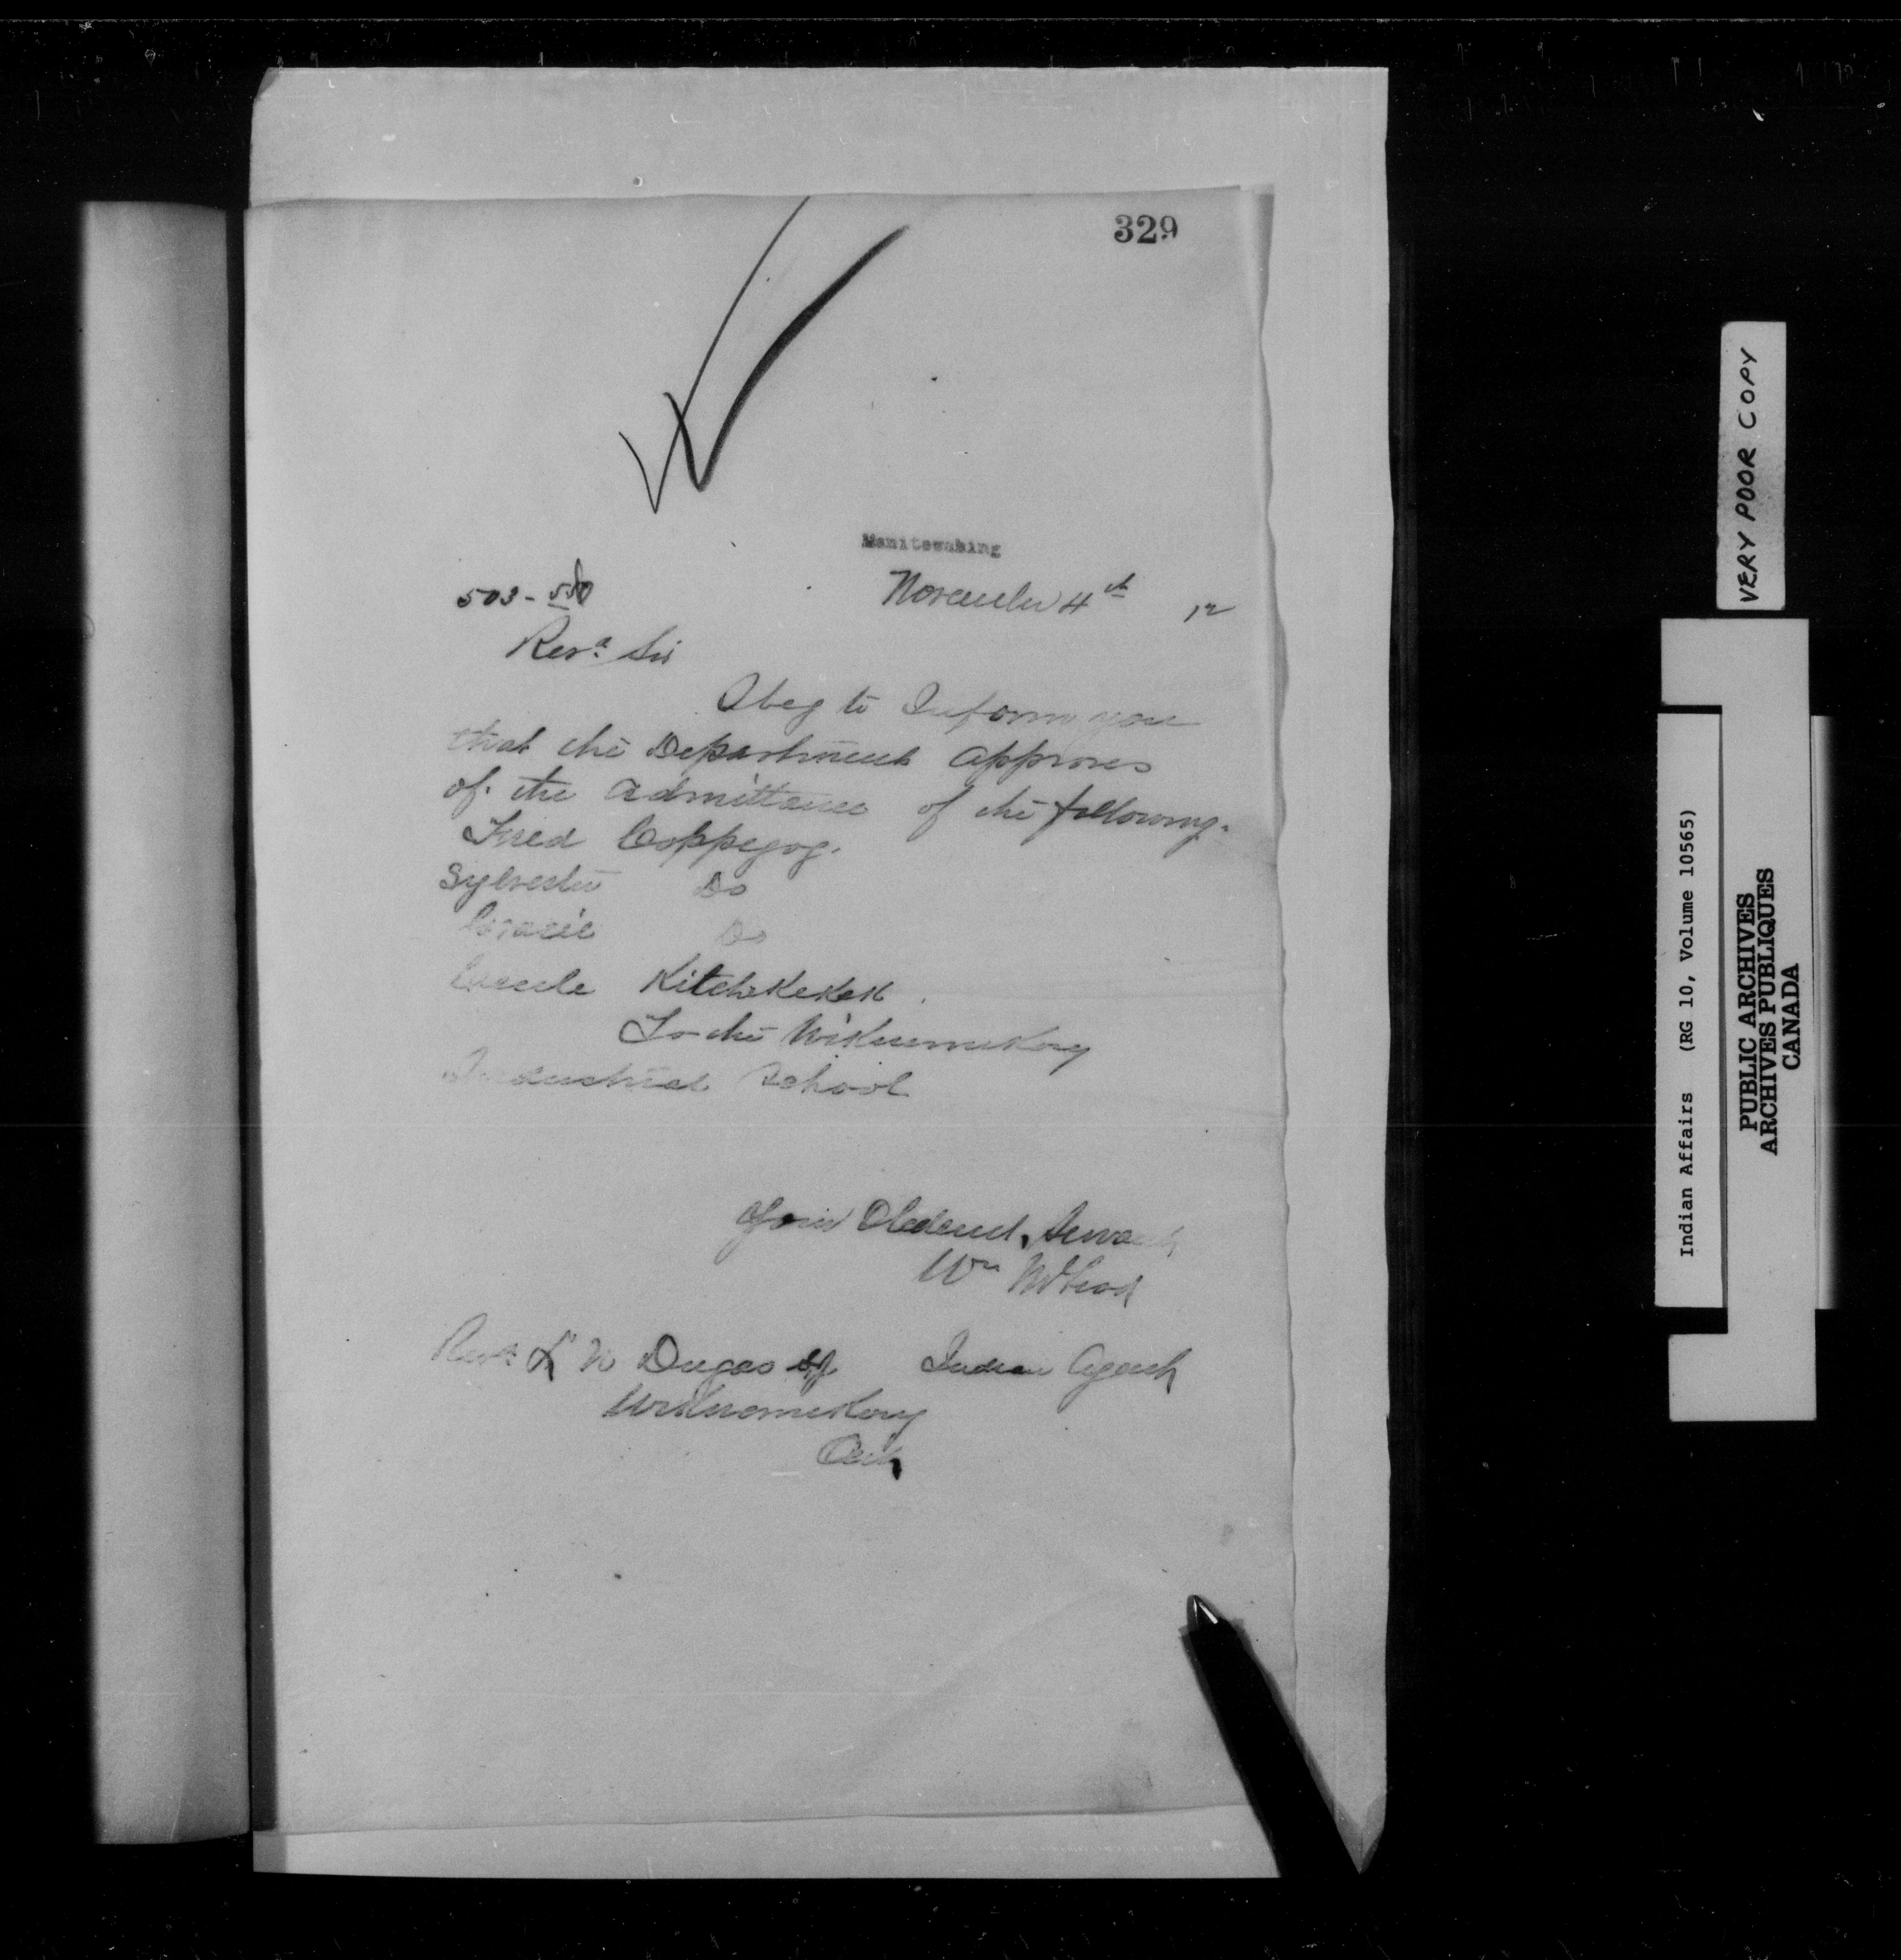 329
Manitowaning
503-
November 4th 12
Revd Sir
I beg to Inform you
that the Department approves
of the admittance of the following.
Fred Coppegog.
Sylvester Do
Gracie Do
Cecile Kitchikekek.
To the Wikwemikong
Industrial School
Your Obedient, Servant
Wm McLeod
Revd L N Dugas SJ Indian Agent
Wikwemikong
Ont
VERY POOR COPY
Indian Affairs (RG 10, Volume 10565)
PUBLIC ARCHIVES
ARCHIVES PUBLIQUES
CANADA